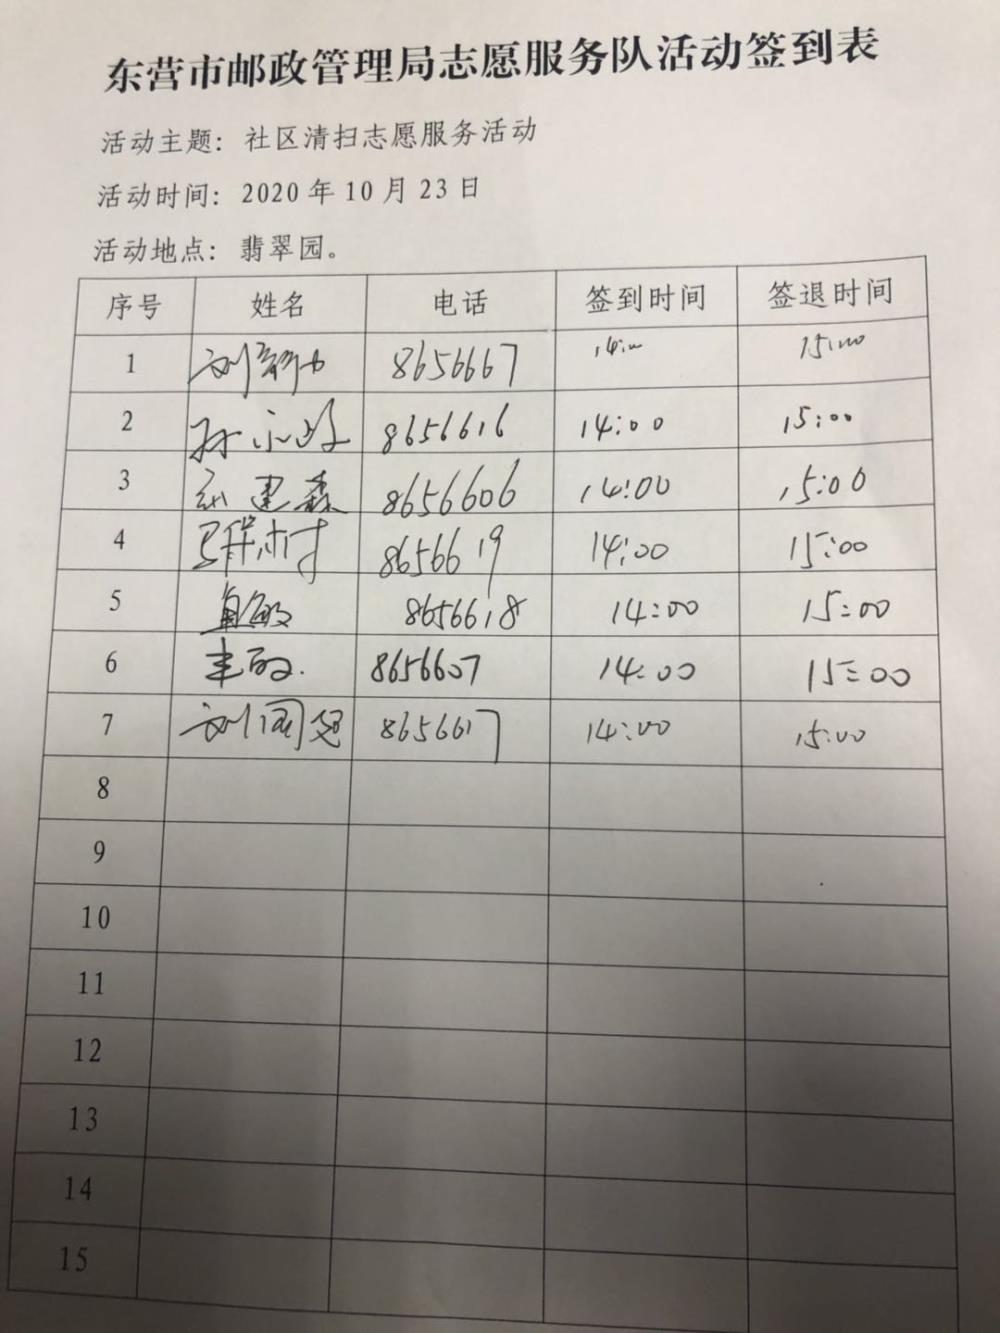 东营市邮政管理局志愿服务队活动签到表
活动主题: 社区清扫志愿服务活动
活动时间: 2020 年 10 月 23 日
活动地点: 翡翠园。
序号 姓名 电话 签到时间 签退时间
1 8656667 14:00 15:00
2 8656616 14:00 15:00
3 建森 8656606 14:00 15:00
4 8656619 14:00 15:00
5 8656618 14:00 15:00
6 8656607 14:00 15:00
7 刘国 8656617 14:00 15:00
8
9
10
11
12
13
14
15